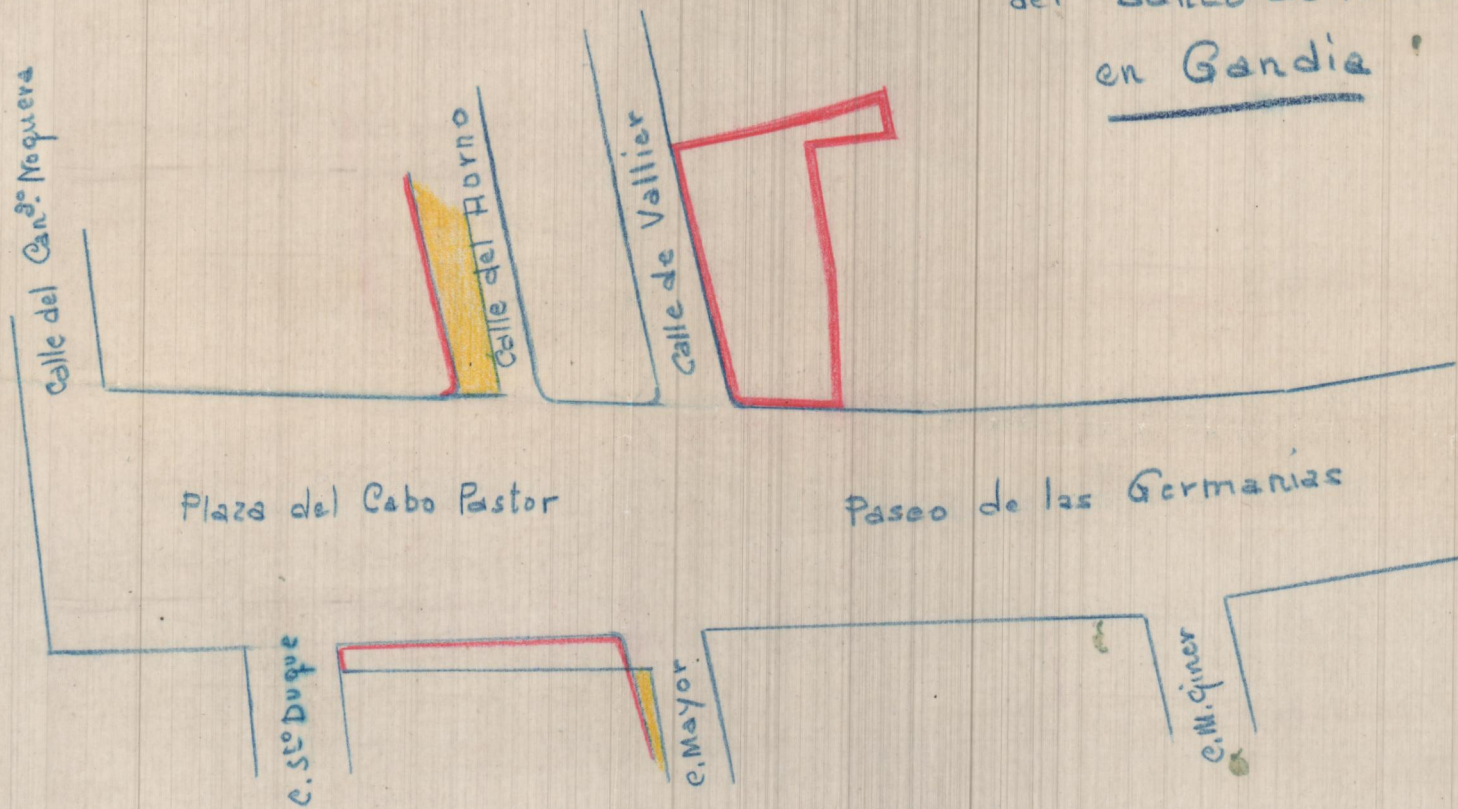 del
en Gandia
Calle del Can.º Noguera
Calle del Horno
Calle de Vallier
Plaza del Cabo Pastor
Paseo de las Germanías
C. Sto Duque
C. Mayor
C. M. Giner